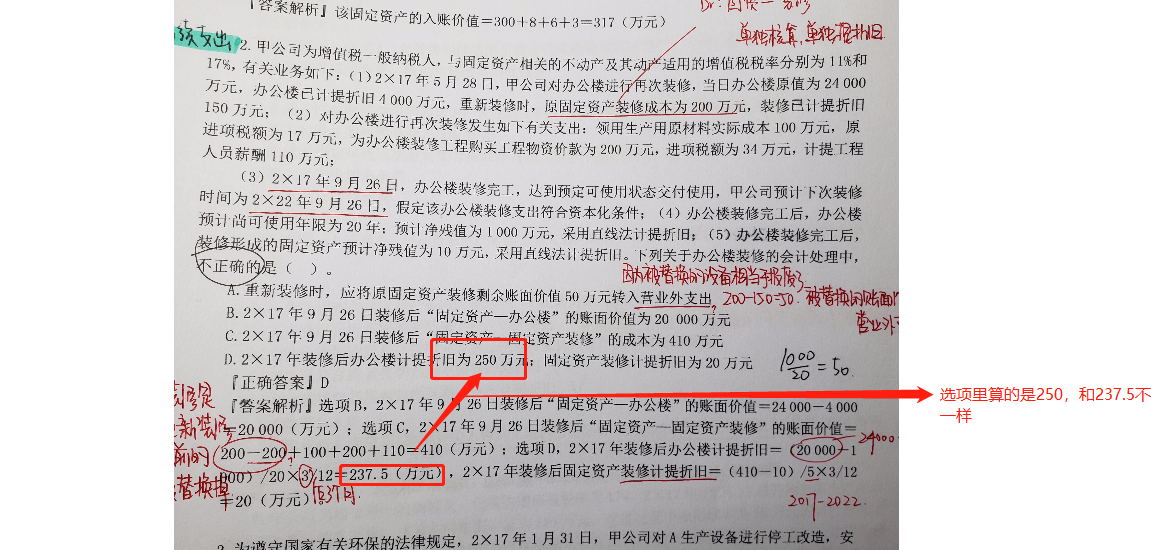 『答案解析』该固定资产的入账价值=300+8+6+3=317（万元）
单独核算,单独提折旧.
2. 甲公司为增值税一般纳税人，与固定资产相关的不动产及其动产适用的增值税税率分别为11%和
17%，有关业务如下：（1）2×17年5月28日，甲公司对办公楼进行再次装修，当日办公楼原值为24 000
万元，办公楼已计提折旧4 000万元，重新装修时，原固定资产装修成本为200万元，装修已计提折旧
150万元；（2）对办公楼进行再次装修发生如下有关支出：领用生产用原材料实际成本100万元，原
进项税额为17万元，为办公楼装修工程购买工程物资价款为200万元，进项税额为34万元，计提工程
人员薪酬110万元；
（3）2×17年9月26日，办公楼装修完工，达到预定可使用状态交付使用，甲公司预计下次装修
时间为2×22年9月26日，假定该办公楼装修支出符合资本化条件；（4）办公楼装修完工后，办公楼
预计尚可使用年限为20年；预计净残值为1 000万元，采用直线法计提折旧；（5）办公楼装修完工后，
装修形成的固定资产预计净残值为10万元，采用直线法计提折旧。下列关于办公楼装修的会计处理中，
不正确的是（　）。
因为被替换的设备相当于报废了
A. 重新装修时，应将原固定资产装修剩余账面价值50万元转入营业外支出
200-150=50. 被替换的账面
B. 2×17年9月26日装修后“固定资产—办公楼”的账面价值为20 000万元
营业外
C. 2×17年9月26日装修后“固定资产—固定资产装修”的成本为410万元
D. 2×17年装修后办公楼计提折旧为250万元；固定资产装修计提折旧为20万元
1000/20=50.
选项里算的是250，和237.5不
一样
『正确答案』D
『答案解析』选项B，2×17年9月26日装修后“固定资产—办公楼”的账面价值=24 000-4 000
=20 000（万元）；选项C，2×17年9月26日装修后“固定资产—固定资产装修”的账面价值=
200-200+100+200+110=410（万元）；选项D，2×17年装修后办公楼计提折旧=（20 000-1
24000
000）/20×3/12=237.5（万元），2×17年装修后固定资产装修计提折旧=（410-10）/5×3/12
=20（万元）
2017-2022.
为遵守国家有关环保的法律规定，2×17年1月31日，甲公司对A生产设备进行停工改造，安